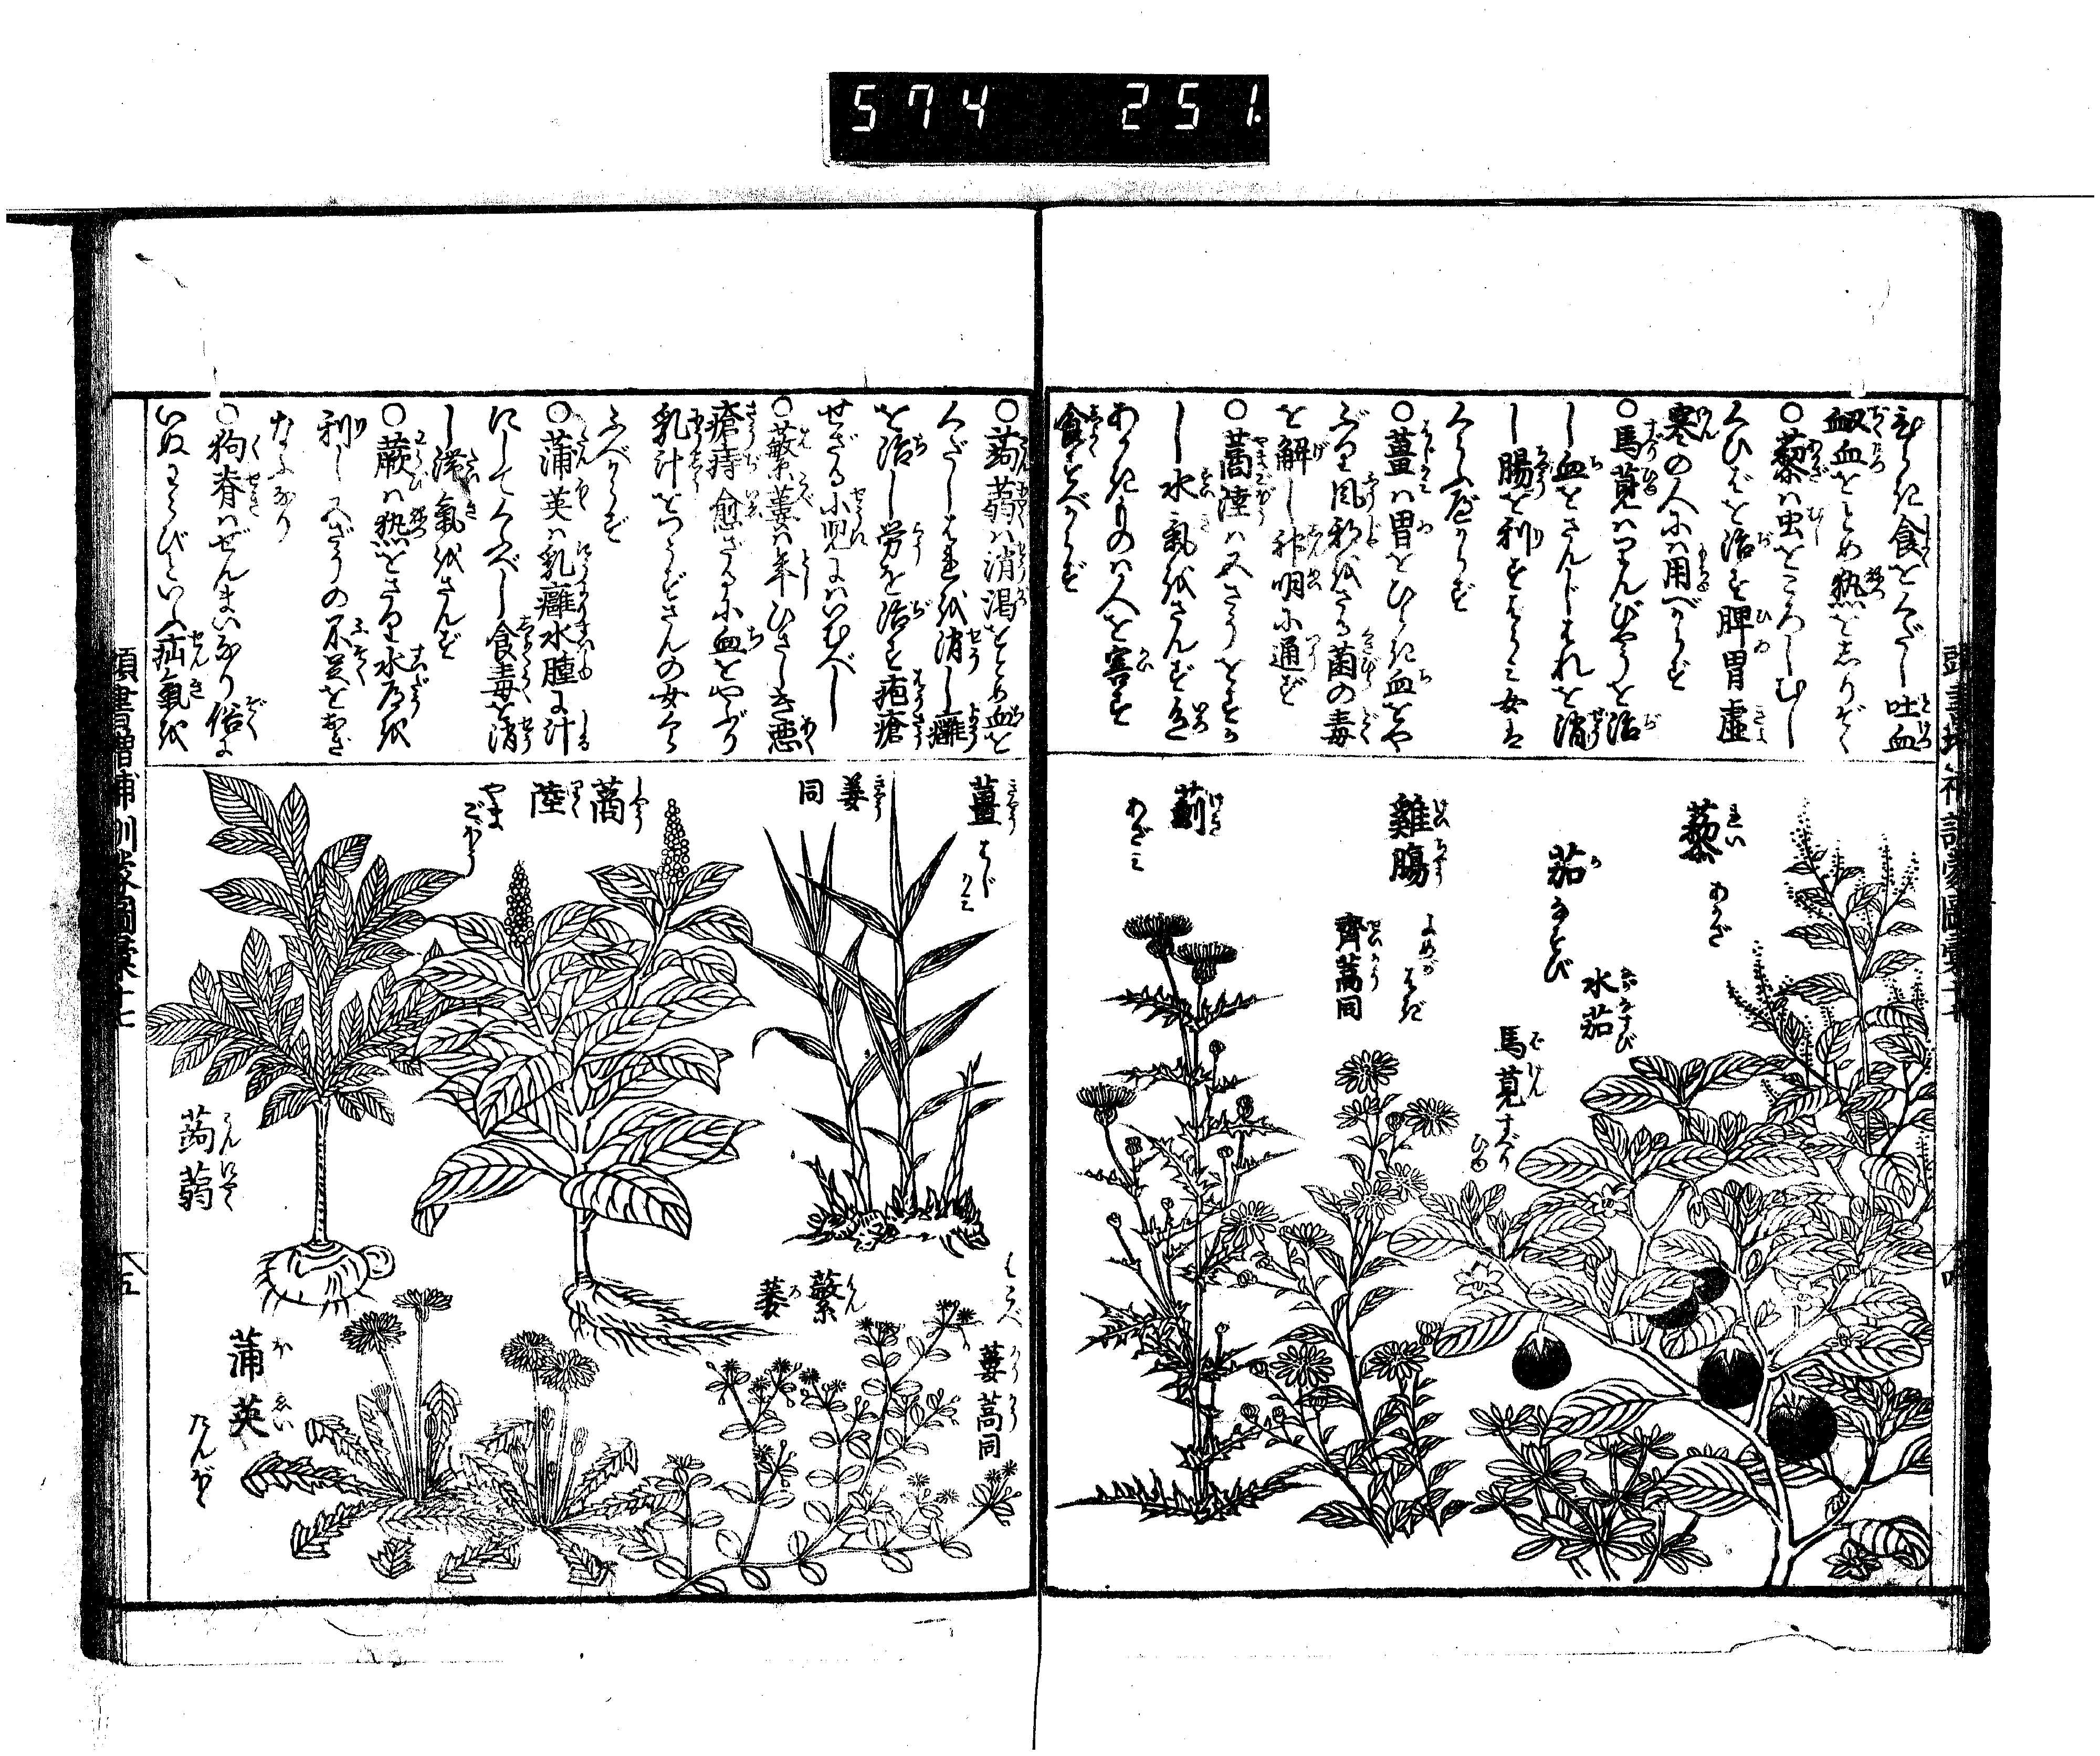 574 251.
ひらき食をくだし吐血
衂血をとめ熱をしりぞく
○藜ハ虫をころしむし
くひばを治す脾胃虚
寒の人にハ用べからず
○馬莧ハりんびやうを治
し血をさんじはれを消
し腸を利すはらみ女は
くらふ屋からず
○薑ハ胃をひらき血をや
ぶり風邪をさる菌の毒
を解し神明に通ず
○蔏陸ハ
し水氣をさんず
あかきものハ人を害す
食すべからず
藜 れい あかざ
茄 か なすび
水茄 ながなすび
馬莧 ばけん すべりひゆ
雞腸 けいちやう よめがはぎ
齊蒿同
薊 けい あざみ
○蒟蒻ハ消渇をとめ血を
くだしはれを消し癰
を治し労を治す疱瘡
せざる小児にハいむべし
○蘩蔞ハ年ひさしき悪
瘡痔愈ざるに血をやぶり
乳汁をつうずさんの女くら
ふべからず
○蒲英ハ乳癰水腫に汁
にしてくふべし食毒を消
し滞氣をさんず
○蕨ハ熱をさり水道を
利し又ざうの不足をおぎ
なふなり
○狗脊ハぜんまいなり俗に
いぬわらびといふ疝氣を
薑 きやう はじかみ
姜同
蔏陸 しやうりく やまごぼう
蒟蒻 こんにやく
蘩蔞 はんろ はこべ
蔞蒿同
蒲英 ほえい たんぽゝ
頭書増補訓蒙圖彙十七
五